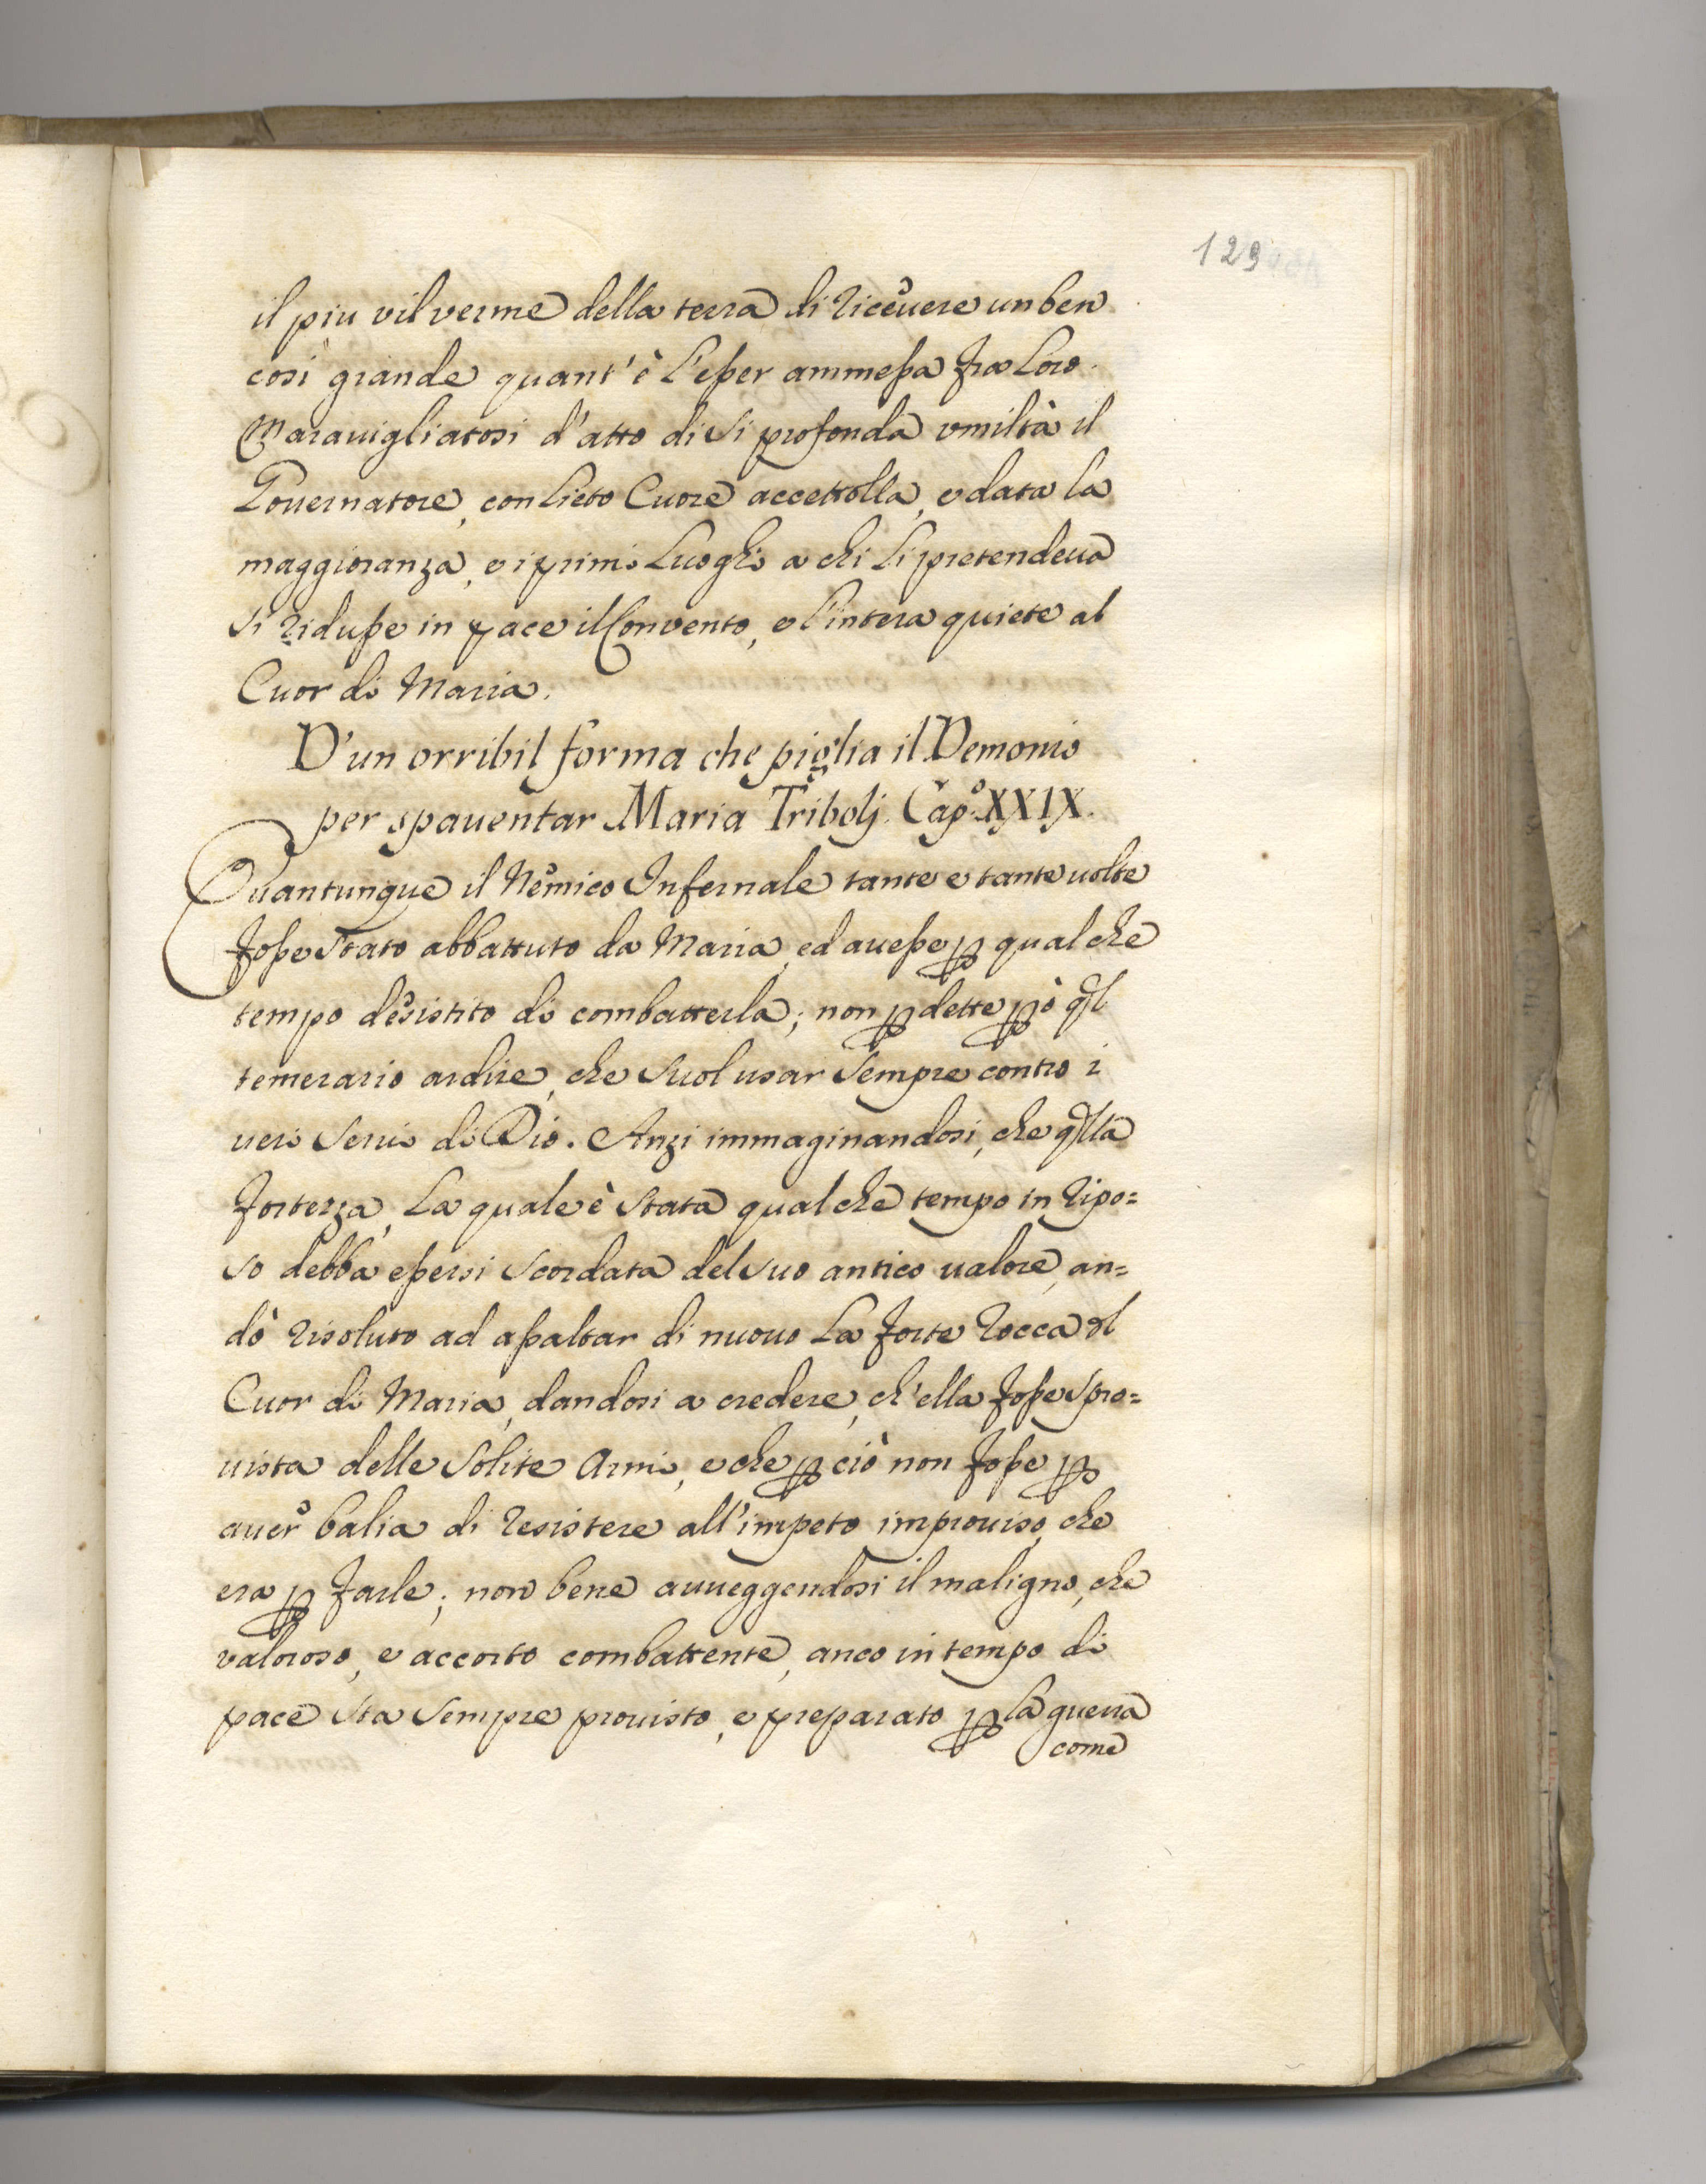 129
il piu vil verme della terra di riceuere un ben
così grande quant'è l'esser ammessa fra loro.
Marauigliatosi d'atto di si profonda vmiltà il
Gouernatore, con lieto Cuore accettolla, e data la
maggioranza, e i primi luoghi a chi li pretendeua
si ridusse in pace il Convento, e l'intera quiete al
Cuor di Maria.
D'un orribil forma che piglia il Demonio
per spauentar Maria Tribolj. Cap.º XXIX.
Quantunque il Nemico Infernale tante e tante uolte
fosse stato abbattuto da Maria, ed auesse p qualche
tempo desistito di combatterla; non pdette pò ql
temerario ardire, che suol usar sempre contro i
ueri serui di Dio. Anzi immaginandosi, che qlla
fortezza, la quale è stata qualche tempo in ripo=
so debba essersi scordata del suo antico ualore, an=
dò risoluto ad assaltar di nuouo la forte rocca dl
Cuor di Maria, dandosi a credere, ch'ella fosse spro=
uista delle solite armi, e che p ciò non fosse p
auer balia di resistere all'impeto improuiso, che
era p farle; non bene auueggendosi il maligno, che
valoroso, e accorto combattente, anco in tempo di
pace sta sempre prouisto, e preparato p la guerra
come